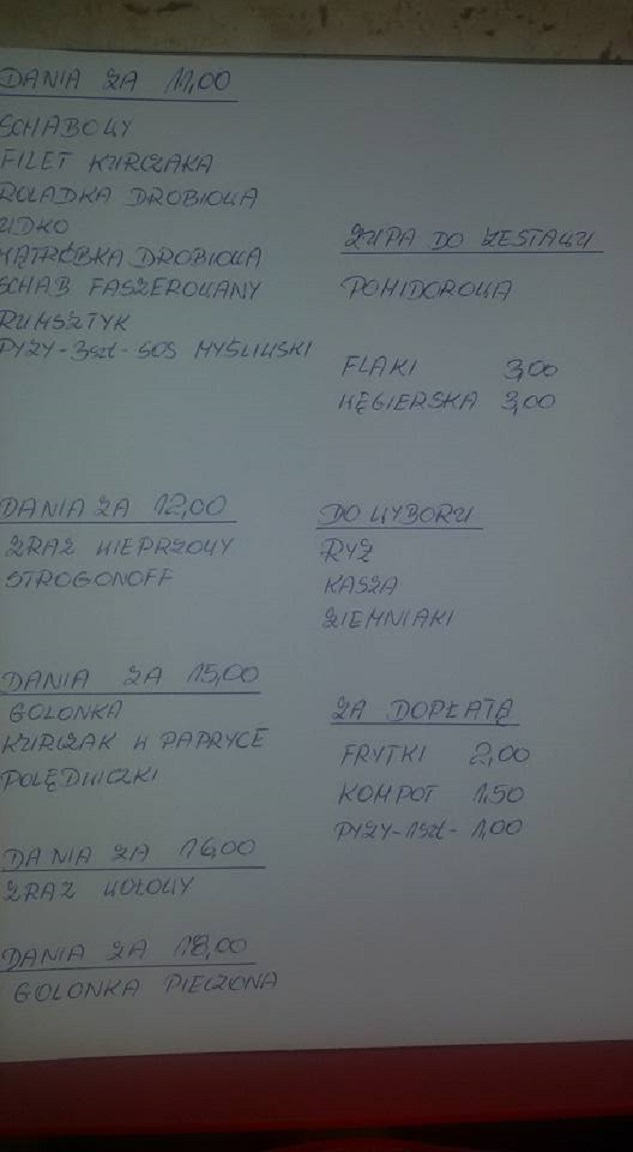 DANIA ZA 11,00
SCHABOWY
FILET KURCZAKA
ROLADKA DROBIOWA
UDKO
WĄTRÓBKA DROBIOWA
SCHAB FASZEROWANY
RUMSZTYK
PYZY-3szt-SOS MYŚLIWSKI
ZUPA DO ZESTAWU
POMIDOROWA
FLAKI 3,00
WĘGIERSKA 3,00
DANIA ZA 12,00
ZRAZ WIEPRZOWY
STROGONOFF
DO WYBORU
RYŻ
KASZA
ZIEMNIAKI
DANIA ZA 15,00
GOLONKA
KURCZAK W PAPRYCE
POLĘDWICZKI
ZA DOPŁATĄ
FRYTKI 2,00
KOMPOT 1,50
PYZY-1szt-1,00
DANIA ZA 16,00
ZRAZ WOŁOWY
DANIA ZA 18,00
GOLONKA PIECZONA